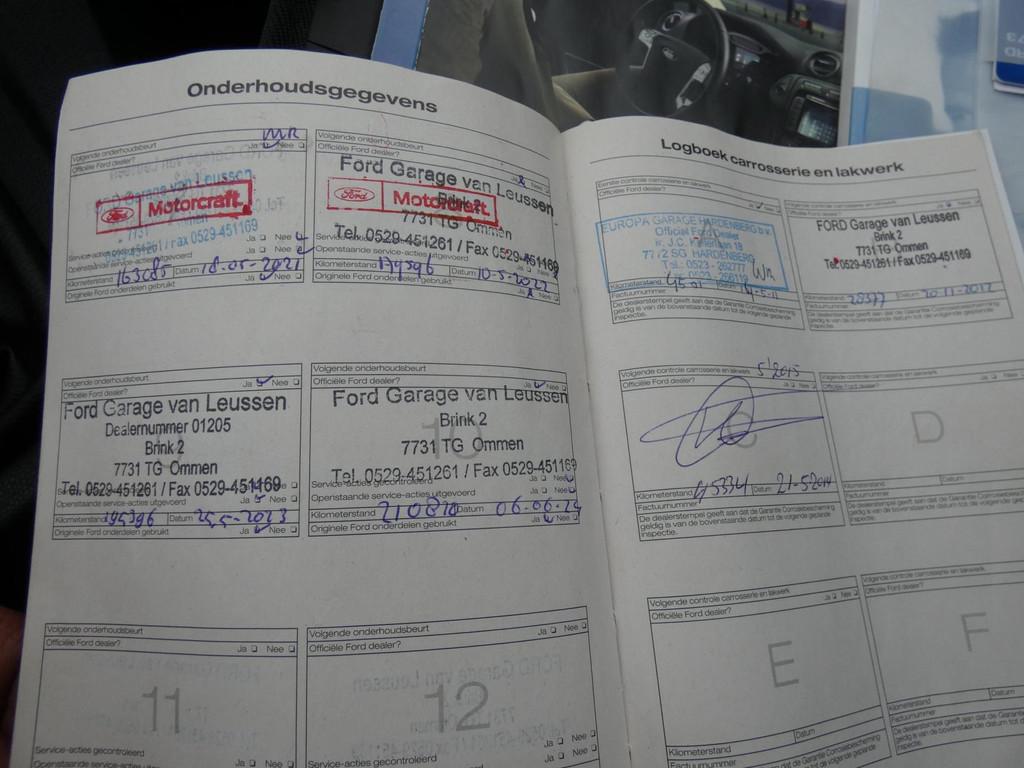 Onderhoudsgegevens
MR
Volgende onderhoudsbeurt
Officiële Ford dealer? Ja Nee
Ford Motorcraft
Ja Nee
Openstaande service-acties
Kilometerstand 163085 Datum 18-05-2021
Originele Ford onderdelen gebruikt
Volgende onderhoudsbeurt
Officiële Ford dealer? Ja Nee
Ford Garage van Leussen
Brink 2
Ford Motorcraft
7731 TG Ommen
Tel. 0529-451261 / Fax 0529-451169
Openstaande service-acties uitgevoerd
Kilometerstand 179396 Datum 10-5-2022
Originele Ford onderdelen gebruikt Ja Nee
Volgende onderhoudsbeurt
Officiële Ford dealer? Ja Nee
Ford Garage van Leussen
Dealernummer 01205
Brink 2
7731 TG Ommen
Tel. 0529-451261 / Fax 0529-451169
Openstaande service-acties uitgevoerd Ja Nee
Kilometerstand 195396 Datum 25-5-2023
Originele Ford onderdelen gebruikt Ja Nee
Volgende onderhoudsbeurt
Officiële Ford dealer? Ja Nee
Ford Garage van Leussen
Brink 2
7731 TG Ommen
Tel. 0529-451261 / Fax 0529-451169
Service-acties gecontroleerd Ja Nee
Openstaande service-acties uitgevoerd Ja Nee
Kilometerstand 210870 Datum 06-06-24
Originele Ford onderdelen gebruikt Ja Nee
Volgende onderhoudsbeurt
Officiële Ford dealer? Ja Nee
11
Service-acties gecontroleerd
Openstaande service-acties uitgevoerd Ja Nee
Volgende onderhoudsbeurt
Officiële Ford dealer? Ja Nee
12
Service-acties gecontroleerd Ja Nee
Ja Nee
Logboek carrosserie en lakwerk
Eerste controle carrosserie en lakwerk
Officiële Ford dealer? Ja Nee
EUROPA GARAGE HARDENBERG b.v.
Official Ford Dealer
7772 SG HARDENBERG
Tel.: 0523-262777
Kilometerstand
Factuurnummer
De dealerstempel geeft aan dat de Garantie Carrosseriebescherming
geldig is van de bovenstaande datum tot de volgende geplande
inspectie.
Volgende controle carrosserie en lakwerk
Officiële Ford dealer? Ja Nee
FORD Garage van Leussen
Brink 2
7731 TG Ommen
Tel. 0529-451261 / Fax 0529-451169
Kilometerstand 28377 Datum 20-11-2012
Factuurnummer
De dealerstempel geeft aan dat de Garantie Carrosseriebescherming
geldig is van de bovenstaande datum tot de volgende geplande
inspectie.
5'2015
Volgende controle carrosserie en lakwerk
Officiële Ford dealer? Ja Nee
C
Kilometerstand 45334 Datum 21-5-2014
Factuurnummer
De dealerstempel geeft aan dat de Garantie Carrosseriebescherming
geldig is van de bovenstaande datum tot de volgende geplande
inspectie.
Volgende controle carrosserie en lakwerk
Officiële Ford dealer? Ja Nee
D
Kilometerstand Datum
Factuurnummer
De dealerstempel geeft aan dat de Garantie Carrosseriebescherming
geldig is van de bovenstaande datum tot de volgende geplande
inspectie.
Volgende controle carrosserie en lakwerk
Officiële Ford dealer? Ja Nee
E
Kilometerstand Datum
Factuurnummer
Volgende controle carrosserie en lakwerk
Officiële Ford dealer? Ja Nee
F
Kilometerstand Datum
Factuurnummer
De dealerstempel geeft aan dat de Garantie Carrosseriebescherming
geldig is van de bovenstaande datum tot de volgende geplande
inspectie.